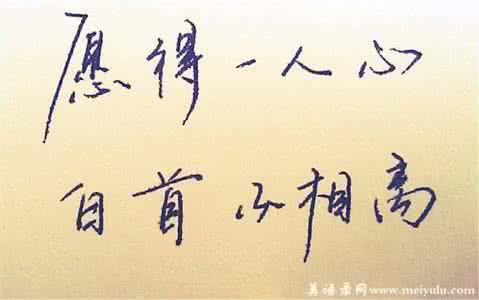 愿得一人心
白首不相离
美语录网www.meiyulu.com